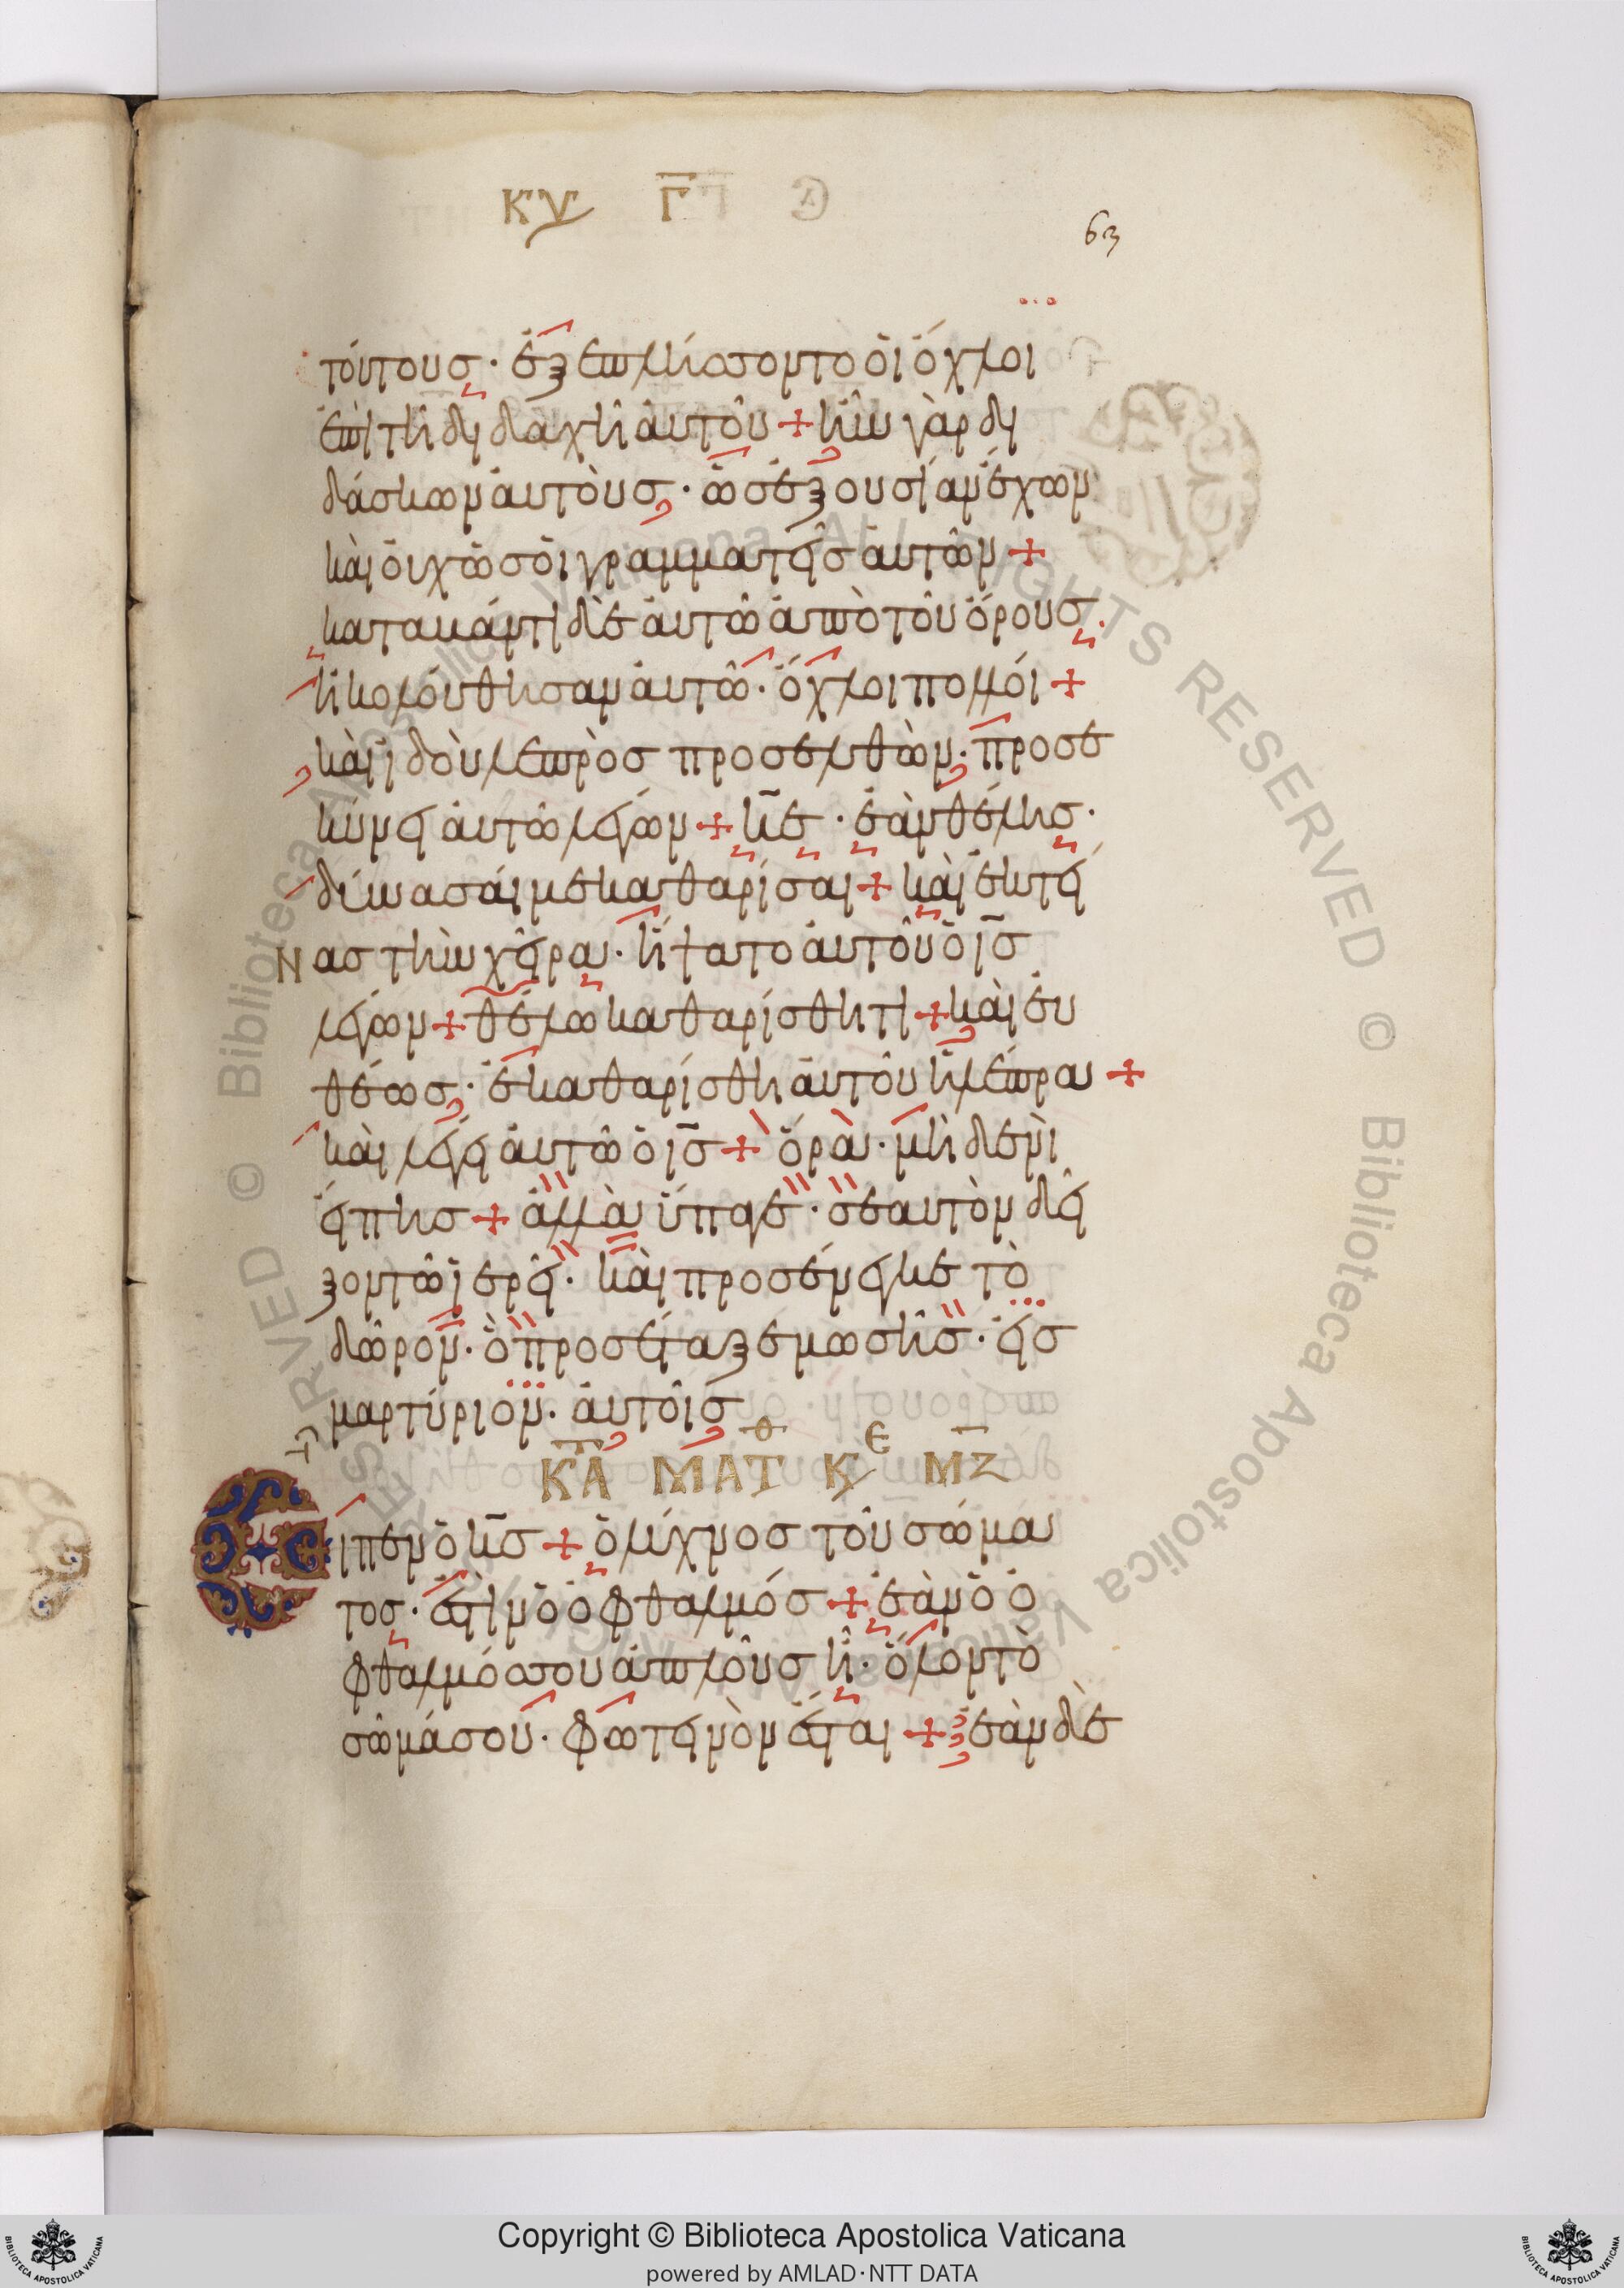 ΚΥ Γ̅
63
τούτουσ· ἐξεπλήσσοντο ὁι ὄχλοι
ἐπὶ τῆ διδαχῆ ἀυτοῦ + ἦν γὰρ δι
δάσκων ἀυτοὺσ· ὡσ ἐξουσίαν ἔχων
κὰι ὀυχ ὡσ ὁι γραμματεῖσ ἀυτῶν +
καταβάντι δὲ ἀυτῶ ἀπὸ τοῦ ὄρουσ.
ἠκολόυθησαν ἀυτῶ· ὄχλοι πολλόι +
κὰι ἰδοὺ λεπρὸσ προσελθὼν· προσε
κύνει ἀυτῶ λέγων + κ̅ε̅· ἐὰν θέλησ·
δύνασάι με καθαρίσαι + κὰι ἐκτεί
Νασ τὴν χεῖρα· ἥψατο ἀυτοῦ ὁ ι̅σ̅
λέγων + θέλω καθαρίσθητι + κὰι ἐυ
θέωσ· ἐκαθαρίσθη ἀυτοῦ ἡ λέπρα +
κὰι λέγει ἀυτῶ ὁ ι̅σ̅ + ὅρα· μὴδενὶ
ἔιπησ + ἀλλὰ ὕπαγε· σεαυτὸν δεῖ
ξον τῶ ἱερεῖ· κὰι προσένεγκε τὸ
δῶρον· ὃ προσέταξε μωσῆσ· ἐισ
μαρτύριον· ἀυτοῖσ
Κ̅Α̅ ΜΑΤΘ ΚΕ ΜΖ
Ειπεν ὁ κ̅σ̅ + ὁ λύχνοσ τοῦ σώμα
τοσ· ἐστὶν ὁ ὀφθαλμόσ + ἐὰν ὁ ὀ
φθαλμόσ σου ἁπλοῦσ ἦ· ὅλον τὸ
σῶμά σου· φωτεινὸν ἔσται + ἐὰν δὲ
Copyright © Biblioteca Apostolica Vaticana
powered by AMLAD·NTT DATA